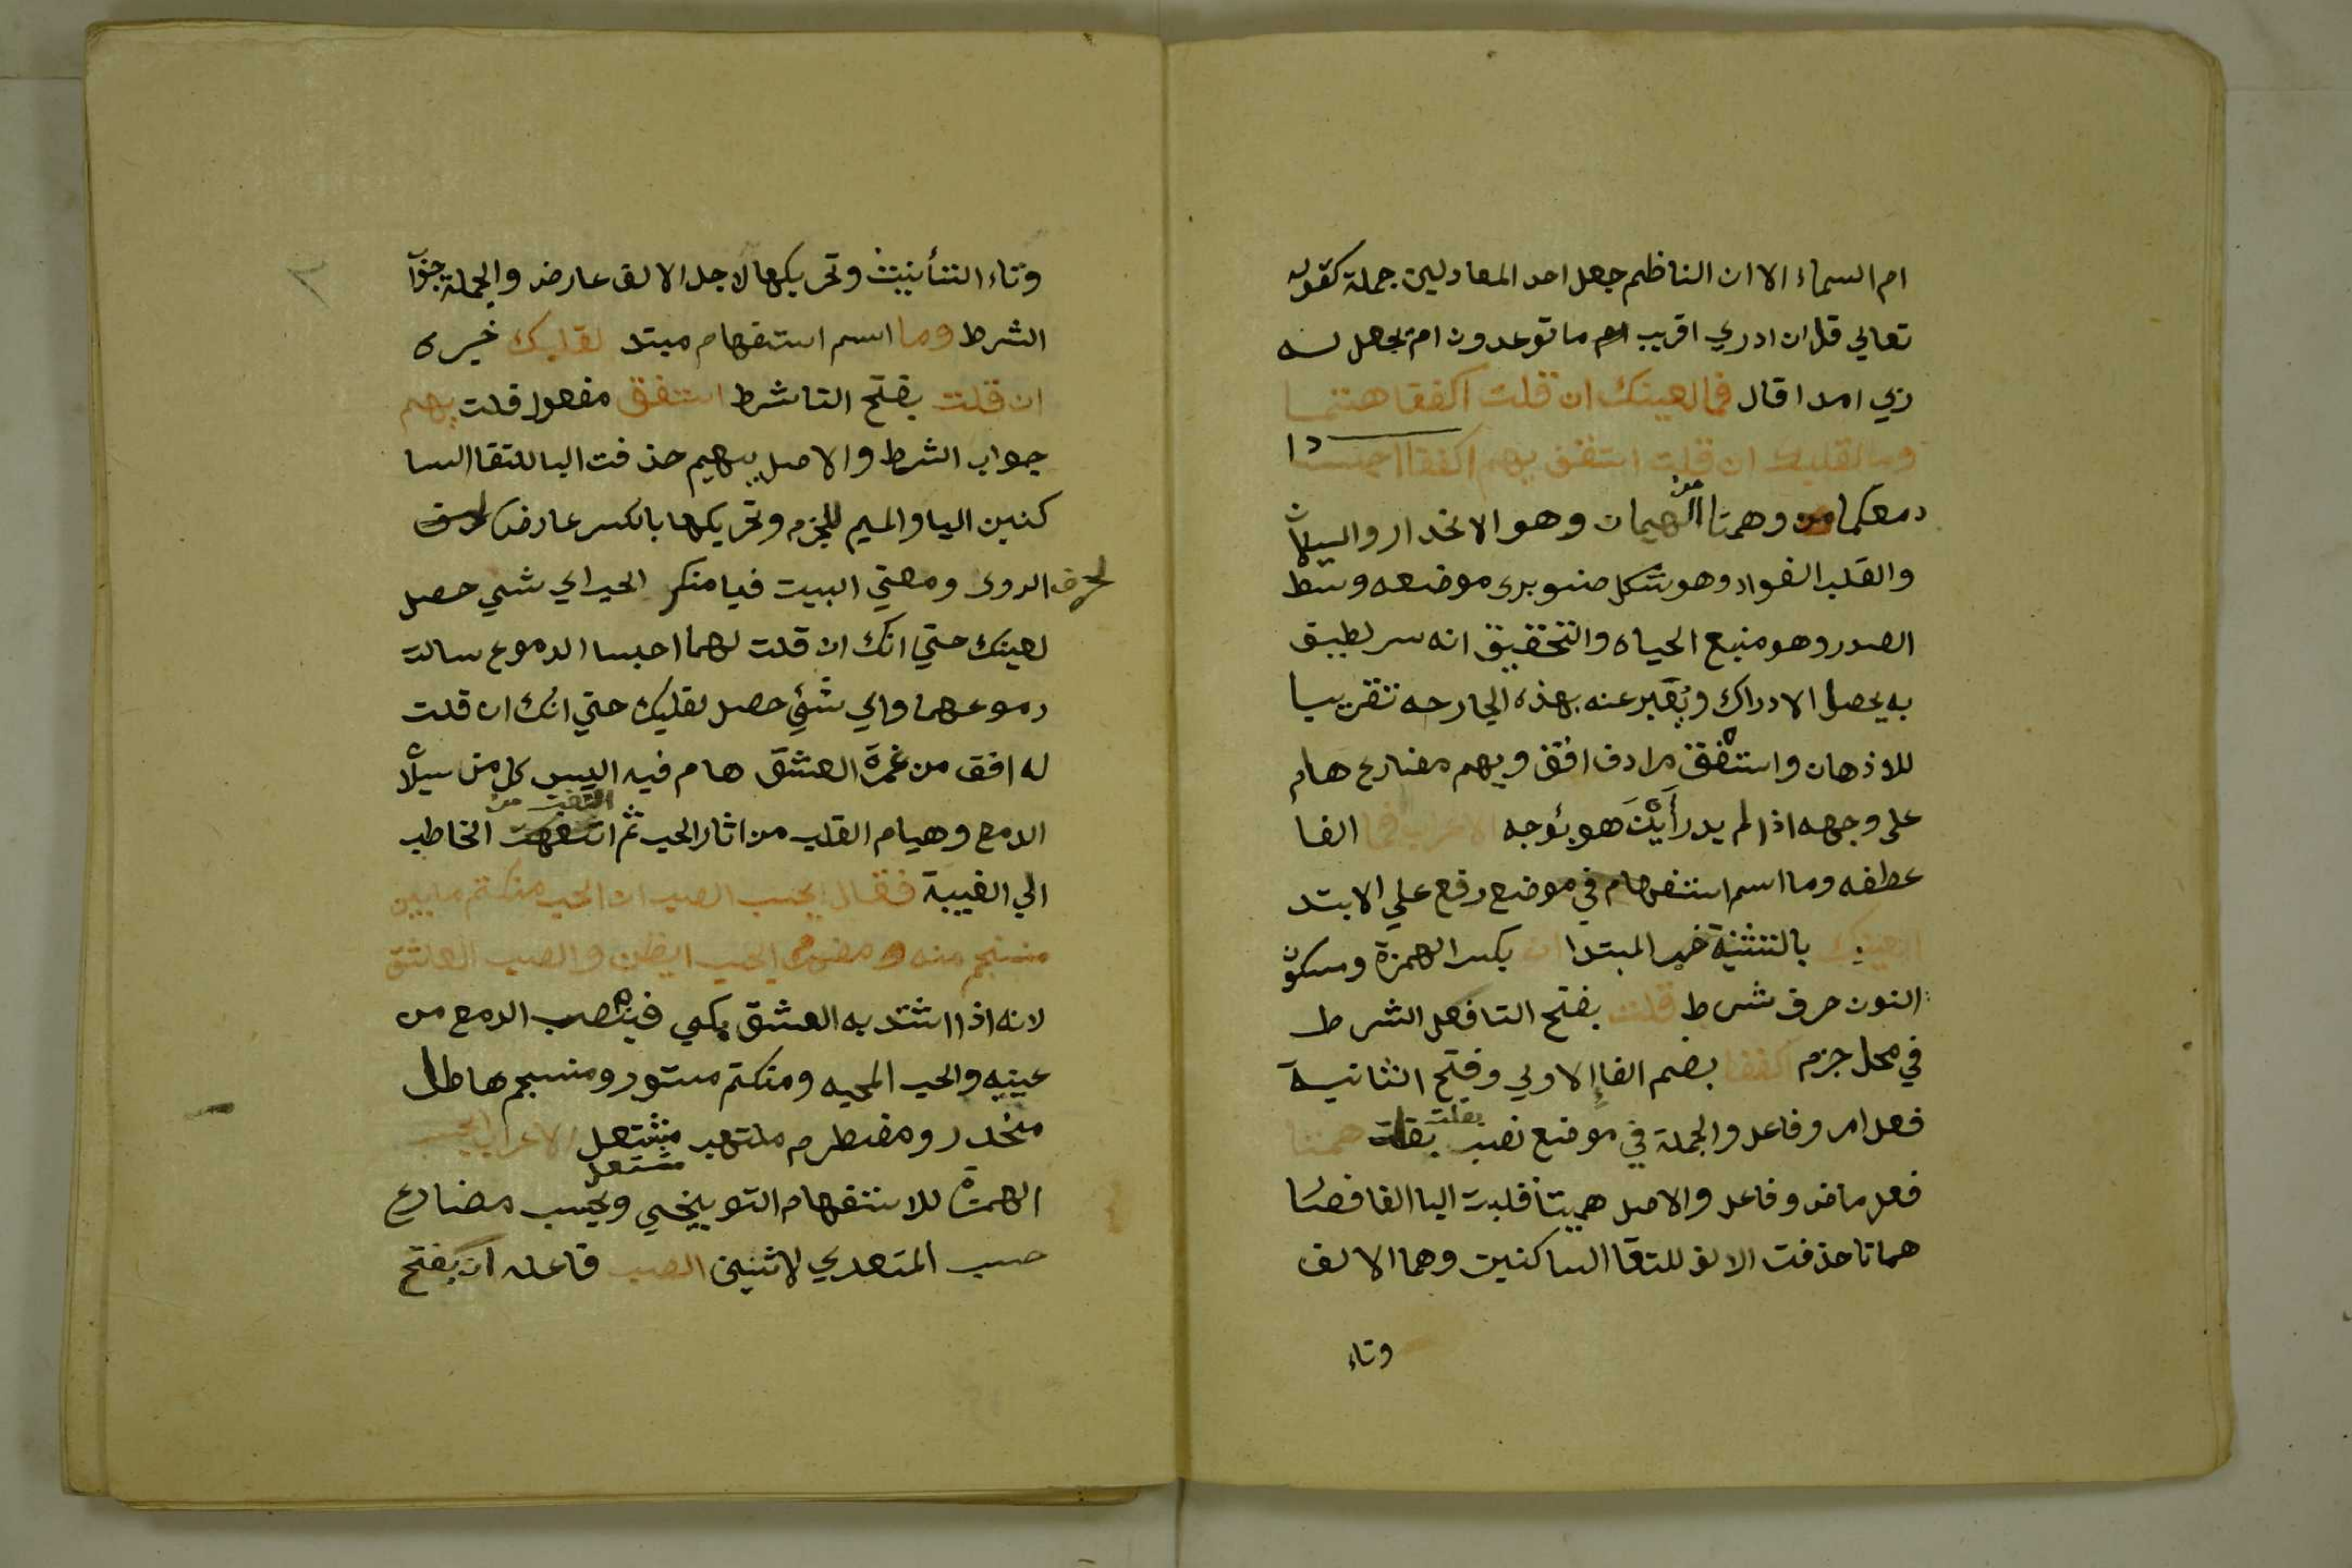 ام السماء الا ان الناظم جعل احد المعادلين جملة كقوله
تعالي قل ان ادري اقريب ام ما توعدون ام يجعل له
ربي امدا قال فما لعينك ان قلت اكففا همتا
وما لقلبك ان قلت استفق يهم اكففا احبسا
دمعكما وهمتا من الهيمان وهو الانحدار والسيلان
والقلب الفواد وهو شكل صنوبرى موضعه وسط
الصدر وهو منبع الحياه والتحقيق انه سر لطيف
به يحصل الادراك ويعبر عنه بهذه الجارحه تقريبا
للاذهان واستفق مرادف افق ويهم مضارع هام
على وجهه اذا لم يدر أَيْنَ هو بوجه الاعراب فما الفا
عطفه وما اسم استفهام في موضع رفع علي الابتد
لعينيك بالتثنية خبر المبتدا ان بكسر الهمزة وسكون
النون حرف شرط قلت بفتح التا فعل الشرط
في محل جزم اكففا بضم الفا الاولي وفتح الثانية
فعل امر وفاعل والجملة في موضع نصب بقلت بقلت همتا
فعل ماض وفاعل والاصل هميتا قلبت اليا الفا فصا
هماتا حذفت الالف للتقا الساكنين وهما الالف
وتاء
وتاء التأنيث وتحريكها لاجل الالف عارض والجملة جوا
الشرط وما اسم استفهام مبتد لقلبك خبره
ان قلت بفتح التا شرط استفق مفعول قلت يهم
جواب الشرط والاصل يهيم حذفت اليا للتقا السا
كنين اليا والميم للجزم وتحريكها بالكسر عارض
لحرف الروى ومعني البيت فيا منكر الحب اي شي حصل
لعينك حتي انك ان قلت لهما احبسا الدموع سالت
دموعهما واي شَئٍ حصل لقلبك حتي انك ان قلت
له افق من غمرَة العشق هام فيه اليس كل من سيلان
الدمع وهيام القلب من اثار الحب ثم التفت من الخاطب
الي الغيبة فقال ايحسب الصب ان الحب منكتم ما بين
منسجم منه ومضطرم ايحسب ايظن والصب العاشق
لانه اذا اشتد به العشق يبكي فينصب الدمع من
عينيه والحب المحبه ومنكتم مستور ومنسجم هاطل
منحدر ومضطرم ملتهب مشتعل مشتعل الاعراب ايحسب
الهمزة للاستفهام التوبيخي ويحسب مضارع
حسب المتعدي لاثنين الصب فاعله ان بفتح